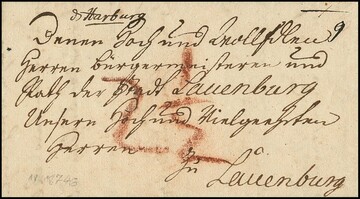 d'Harburg
Denen Hoch und Wolledlen
Herren Bürgermeisteren und
Rath der Stadt Lauenburg
Unsern Hoch und Vielgeehrten
Herren
Zu Lauenburg